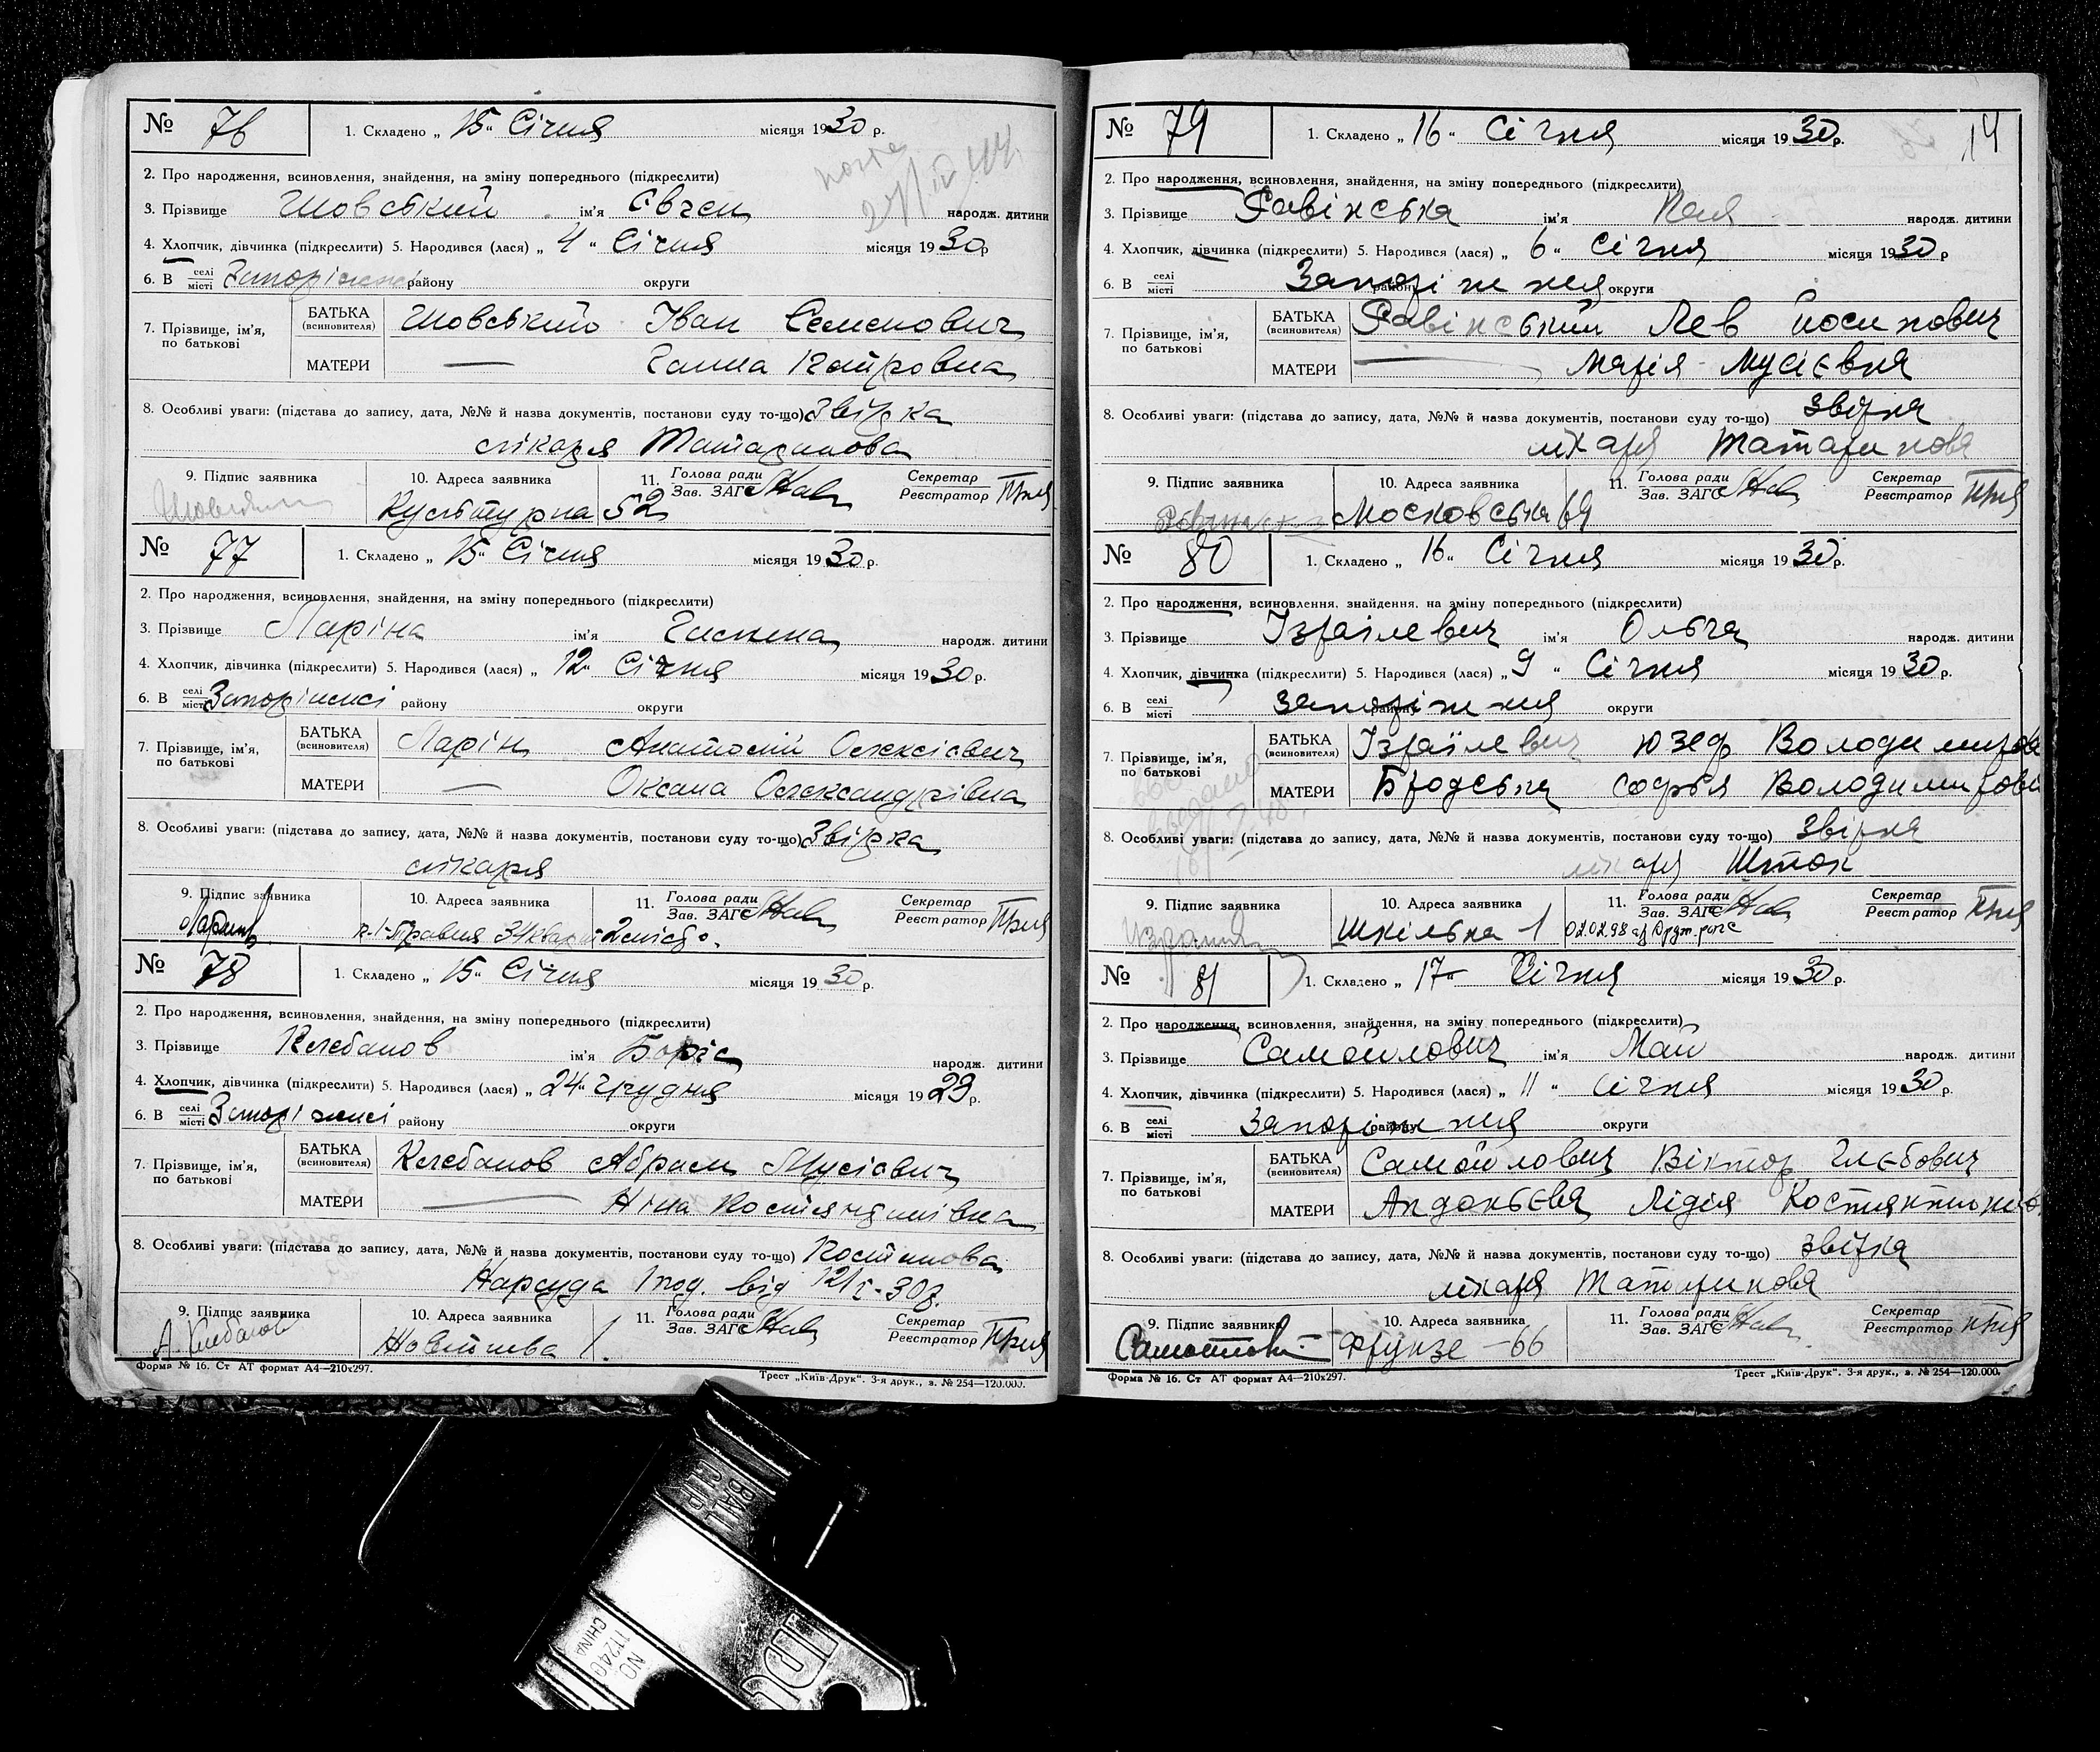 № 76 1. Складено „ 15 " Січня місяця 1930 р.
2. Про народження, всиновлення, знайдення, на зміну попереднього (підкреслити)
3. Прізвище Шовський ім'я Євген народж. дитини
4. Хлопчик, дівчинка (підкреслити) 5. Народився (лася) „ 4 " Січня місяця 1930 р
6. В селі місті Запоріжжі району округи
7. Прізвище, ім'я, по батькові БАТЬКА (всиновителя) Шовський Іван Семенович
МАТЕРИ — Ганна Петровна
8. Особливі уваги: (підстава до запису, дата, №№ й назва документів, постанови суду то-що) Звірка
лікаря Татаринова
9. Підпис заявника 10. Адреса заявника 11. Голова ради Зав. ЗАГС Секретар Реєстратор
Культурна 52
№ 77 1. Складено „ 15 " Січня місяця 1930 р.
2. Про народження, всиновлення, знайдення, на зміну попереднього (підкреслити)
3. Прізвище Ларіна ім'я народж. дитини
4. Хлопчик, дівчинка (підкреслити) 5. Народився (лася) „ 12 " Січня місяця 1930 р.
6. В селі місті Запоріжжі району округи
7. Прізвище, ім'я, по батькові БАТЬКА (всиновителя) Ларін Анатолій Олексієвич
МАТЕРИ — Оксана Олександрівна
8. Особливі уваги: (підстава до запису, дата, №№ й назва документів, постанови суду то-що) Звірка
лікаря
9. Підпис заявника 10. Адреса заявника 11. Голова ради Зав. ЗАГС Секретар Реєстратор
№ 78 1. Складено „ 15 " Січня місяця 1930 р.
2. Про народження, всиновлення, знайдення, на зміну попереднього (підкреслити)
3. Прізвище Клебанов ім'я Боріс народж. дитини
4. Хлопчик, дівчинка (підкреслити) 5. Народився (лася) „ 24 " Грудня місяця 1929 р.
6. В селі місті Запоріжжі району округи
7. Прізвище, ім'я, по батькові БАТЬКА (всиновителя) Клебанов Абрам Мусієвич
МАТЕРИ — Ніна Костянтинівна
8. Особливі уваги: (підстава до запису, дата, №№ й назва документів, постанови суду то-що)
Нарсуда від 12/I-30р.
9. Підпис заявника 10. Адреса заявника 11. Голова ради Зав. ЗАГС Секретар Реєстратор
А. Клебанов
Форма № 16. Ст АТ формат А4—210x297. Трест „Київ-Друк". 3-я друк., з. № 254—120.000.
14
№ 79 1. Складено „ 16 " Січня місяця 1930 р.
2. Про народження, всиновлення, знайдення, на зміну попереднього (підкреслити)
3. Прізвище Равінська ім'я народж. дитини
4. Хлопчик, дівчинка (підкреслити) 5. Народився (лася) „ 6 " Січня місяця 1930 р
6. В селі місті Запоріжжя району округи
7. Прізвище, ім'я, по батькові БАТЬКА (всиновителя) Равінський Лев Йосипович
МАТЕРИ — Марія Мусієвна
8. Особливі уваги: (підстава до запису, дата, №№ й назва документів, постанови суду то-що) Звірка
лікаря Татаринова
9. Підпис заявника 10. Адреса заявника 11. Голова ради Зав. ЗАГС Секретар Реєстратор
Московська 69
№ 80 1. Складено „ 16 " Січня місяця 1930 р.
2. Про народження, всиновлення, знайдення, на зміну попереднього (підкреслити)
3. Прізвище Ізраілевич ім'я Ольга народж. дитини
4. Хлопчик, дівчинка (підкреслити) 5. Народився (лася) „ 9 " Січня місяця 1930 р.
6. В селі місті Запоріжжя району округи
7. Прізвище, ім'я, по батькові БАТЬКА (всиновителя) Ізраїлевич Юзеф
МАТЕРИ Бродська Софья
8. Особливі уваги: (підстава до запису, дата, №№ й назва документів, постанови суду то-що) Звірка
лікаря Шток
9. Підпис заявника 10. Адреса заявника 11. Голова ради Зав. ЗАГС Секретар Реєстратор
Шкільна 1 02.02.98
№ 81 1. Складено „ 17 " Січня місяця 1930 р.
2. Про народження, всиновлення, знайдення, на зміну попереднього (підкреслити)
3. Прізвище Самойлович ім'я Май народж. дитини
4. Хлопчик, дівчинка (підкреслити) 5. Народився (лася) „ 11 " Січня місяця 1930 р.
6. В селі місті Запоріжжя району округи
7. Прізвище, ім'я, по батькові БАТЬКА (всиновителя) Самойлович Віктор Глєбович
МАТЕРИ Лідія
8. Особливі уваги: (підстава до запису, дата, №№ й назва документів, постанови суду то-що) Звірка
лікаря Татаринова
9. Підпис заявника 10. Адреса заявника 11. Голова ради Зав. ЗАГС Секретар Реєстратор
Фрунзе - 66
Форма № 16. Ст АТ формат А4—210x297. Трест „Київ-Друк". 3-я друк., з. № 254—120.000.
BALL CLIP
NO 11240
CHINA